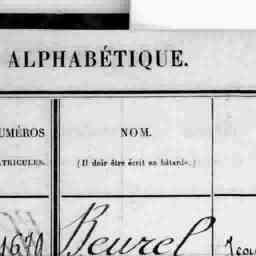 ALPHABÉTIQUE.
UMÉROS
NOM.
ATRICULES.
(Il doir être écrit en bâtarde.)
1671
Beurel
Jean